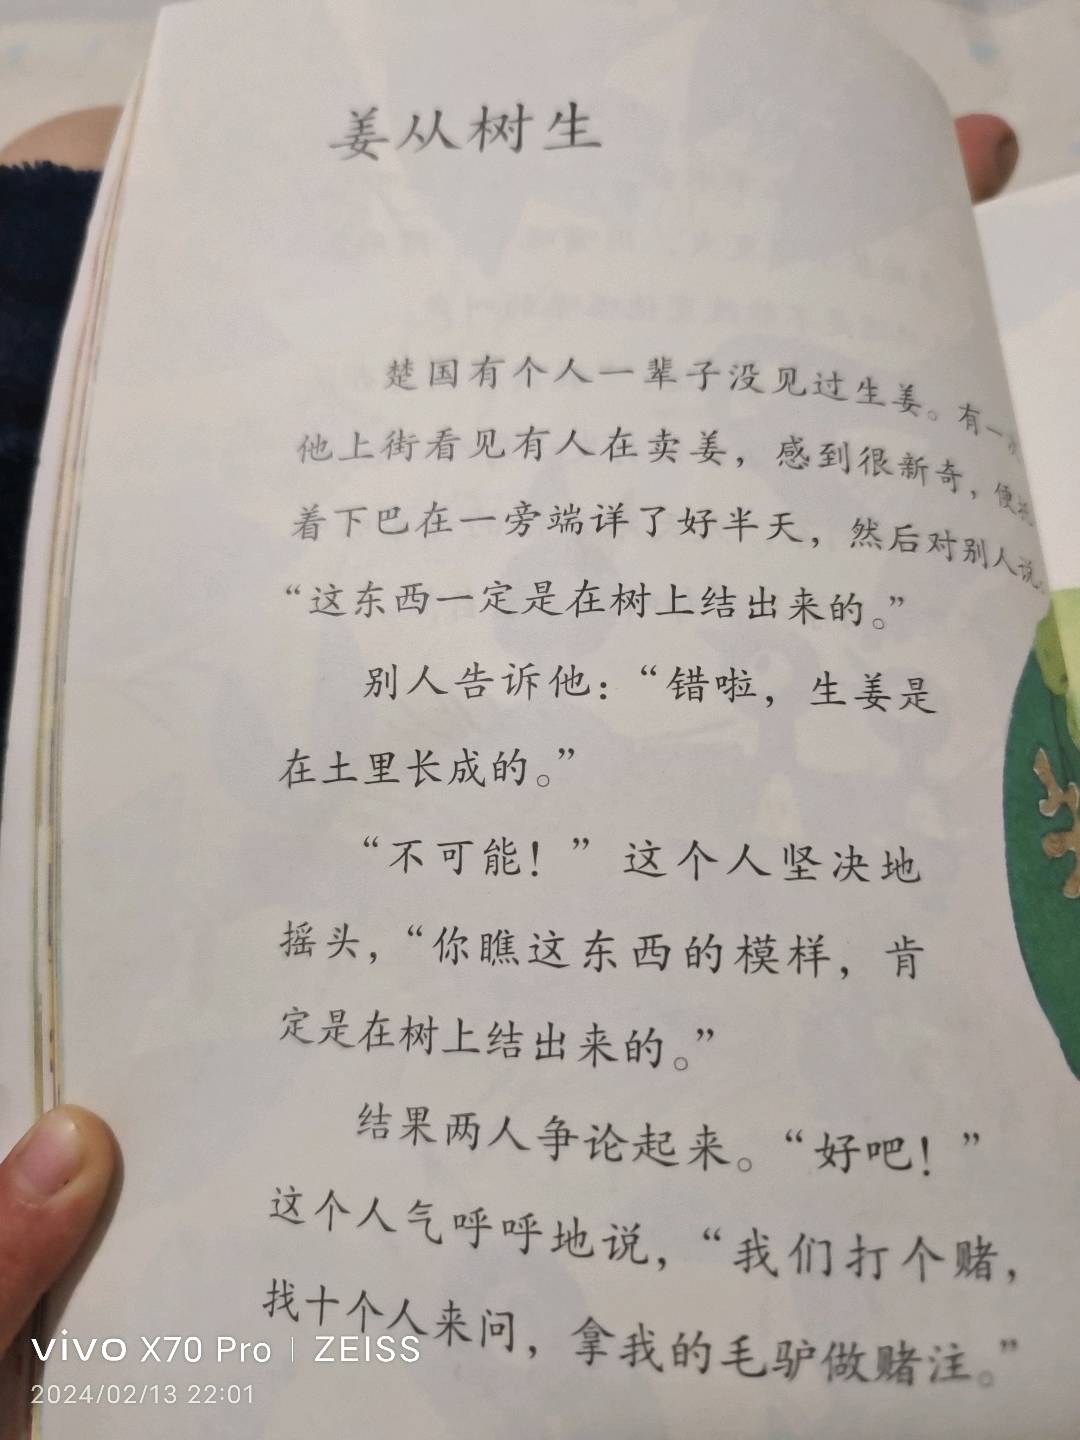 姜从树生
楚国有个人一辈子没见过生姜。有一
他上街看见有人在卖姜，感到很新奇，便
着下巴在一旁端详了好半天，然后对别人说
“这东西一定是在树上结出来的。”
别人告诉他：“错啦，生姜是
在土里长成的。”
“不可能！”这个人坚决地
摇头，“你瞧这东西的模样，肯
定是在树上结出来的。”
结果两人争论起来。“好吧！”
这个人气呼呼地说，“我们打个赌，
找十个人来问，拿我的毛驴做赌注。”
vivo X70 Pro | ZEISS
2024/02/13 22:01